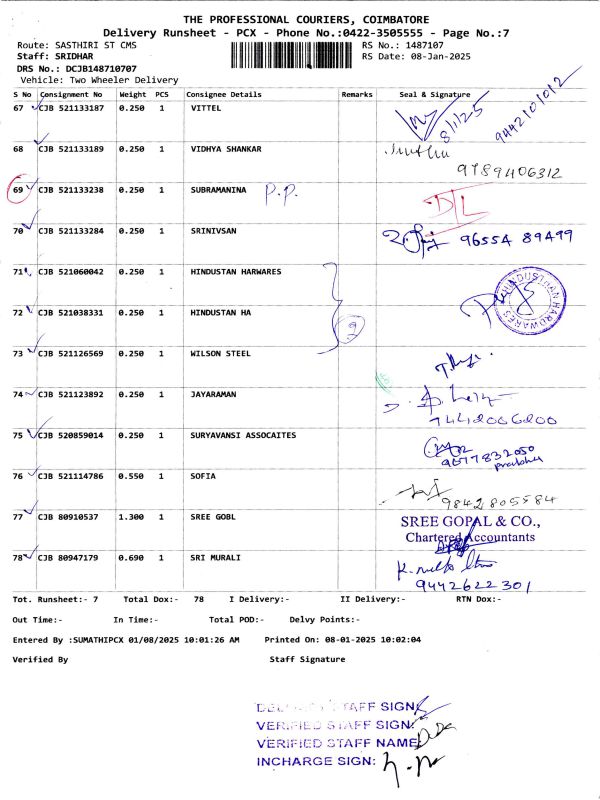 THE PROFESSIONAL COURIERS, COIMBATORE
Delivery Runsheet - PCX - Phone No.:0422-3505555 - Page No.:7
Route: SASTHIRI ST CMS RS No.: 1487107
Staff: SRIDHAR RS Date: 08-Jan-2025
DRS No.: DCJB148710707
Vehicle: Two Wheeler Delivery
S No Consignment No Weight PCS Consignee Details Remarks Seal & Signature
67 CJB 521133187 0.250 1 VITTEL 8/1/25 9442101012
68 CJB 521133189 0.250 1 VIDHYA SHANKAR
9789406312
69 CJB 521133238 0.250 1 SUBRAMANINA P.P. D/L
70 CJB 521133284 0.250 1 SRINIVSAN 96554 89499
71 CJB 521060042 0.250 1 HINDUSTAN HARWARES
HINDUSTHAN HARDWARES
72 CJB 521038331 0.250 1 HINDUSTAN HA 2
73 CJB 521126569 0.250 1 WILSON STEEL
74 CJB 521123892 0.250 1 JAYARAMAN
7442006200
75 CJB 520859014 0.250 1 SURYAVANSI ASSOCAITES
9677832050
prabhu
76 CJB 521114786 0.550 1 SOFIA
9842805584
77 CJB 80910537 1.300 1 SREE GOBL SREE GOPAL & CO.,
Chartered Accountants
78 CJB 80947179 0.690 1 SRI MURALI
9442622301
Tot. Runsheet:- 7 Total Dox:- 78 I Delivery:- II Delivery:- RTN Dox:-
Out Time:- In Time:- Total POD:- Delvy Points:-
Entered By :SUMATHIPCX 01/08/2025 10:01:26 AM Printed On: 08-01-2025 10:02:04
Verified By Staff Signature
STAFF SIGN
VERIFIED STAFF SIGN:
VERIFIED STAFF NAME
INCHARGE SIGN: